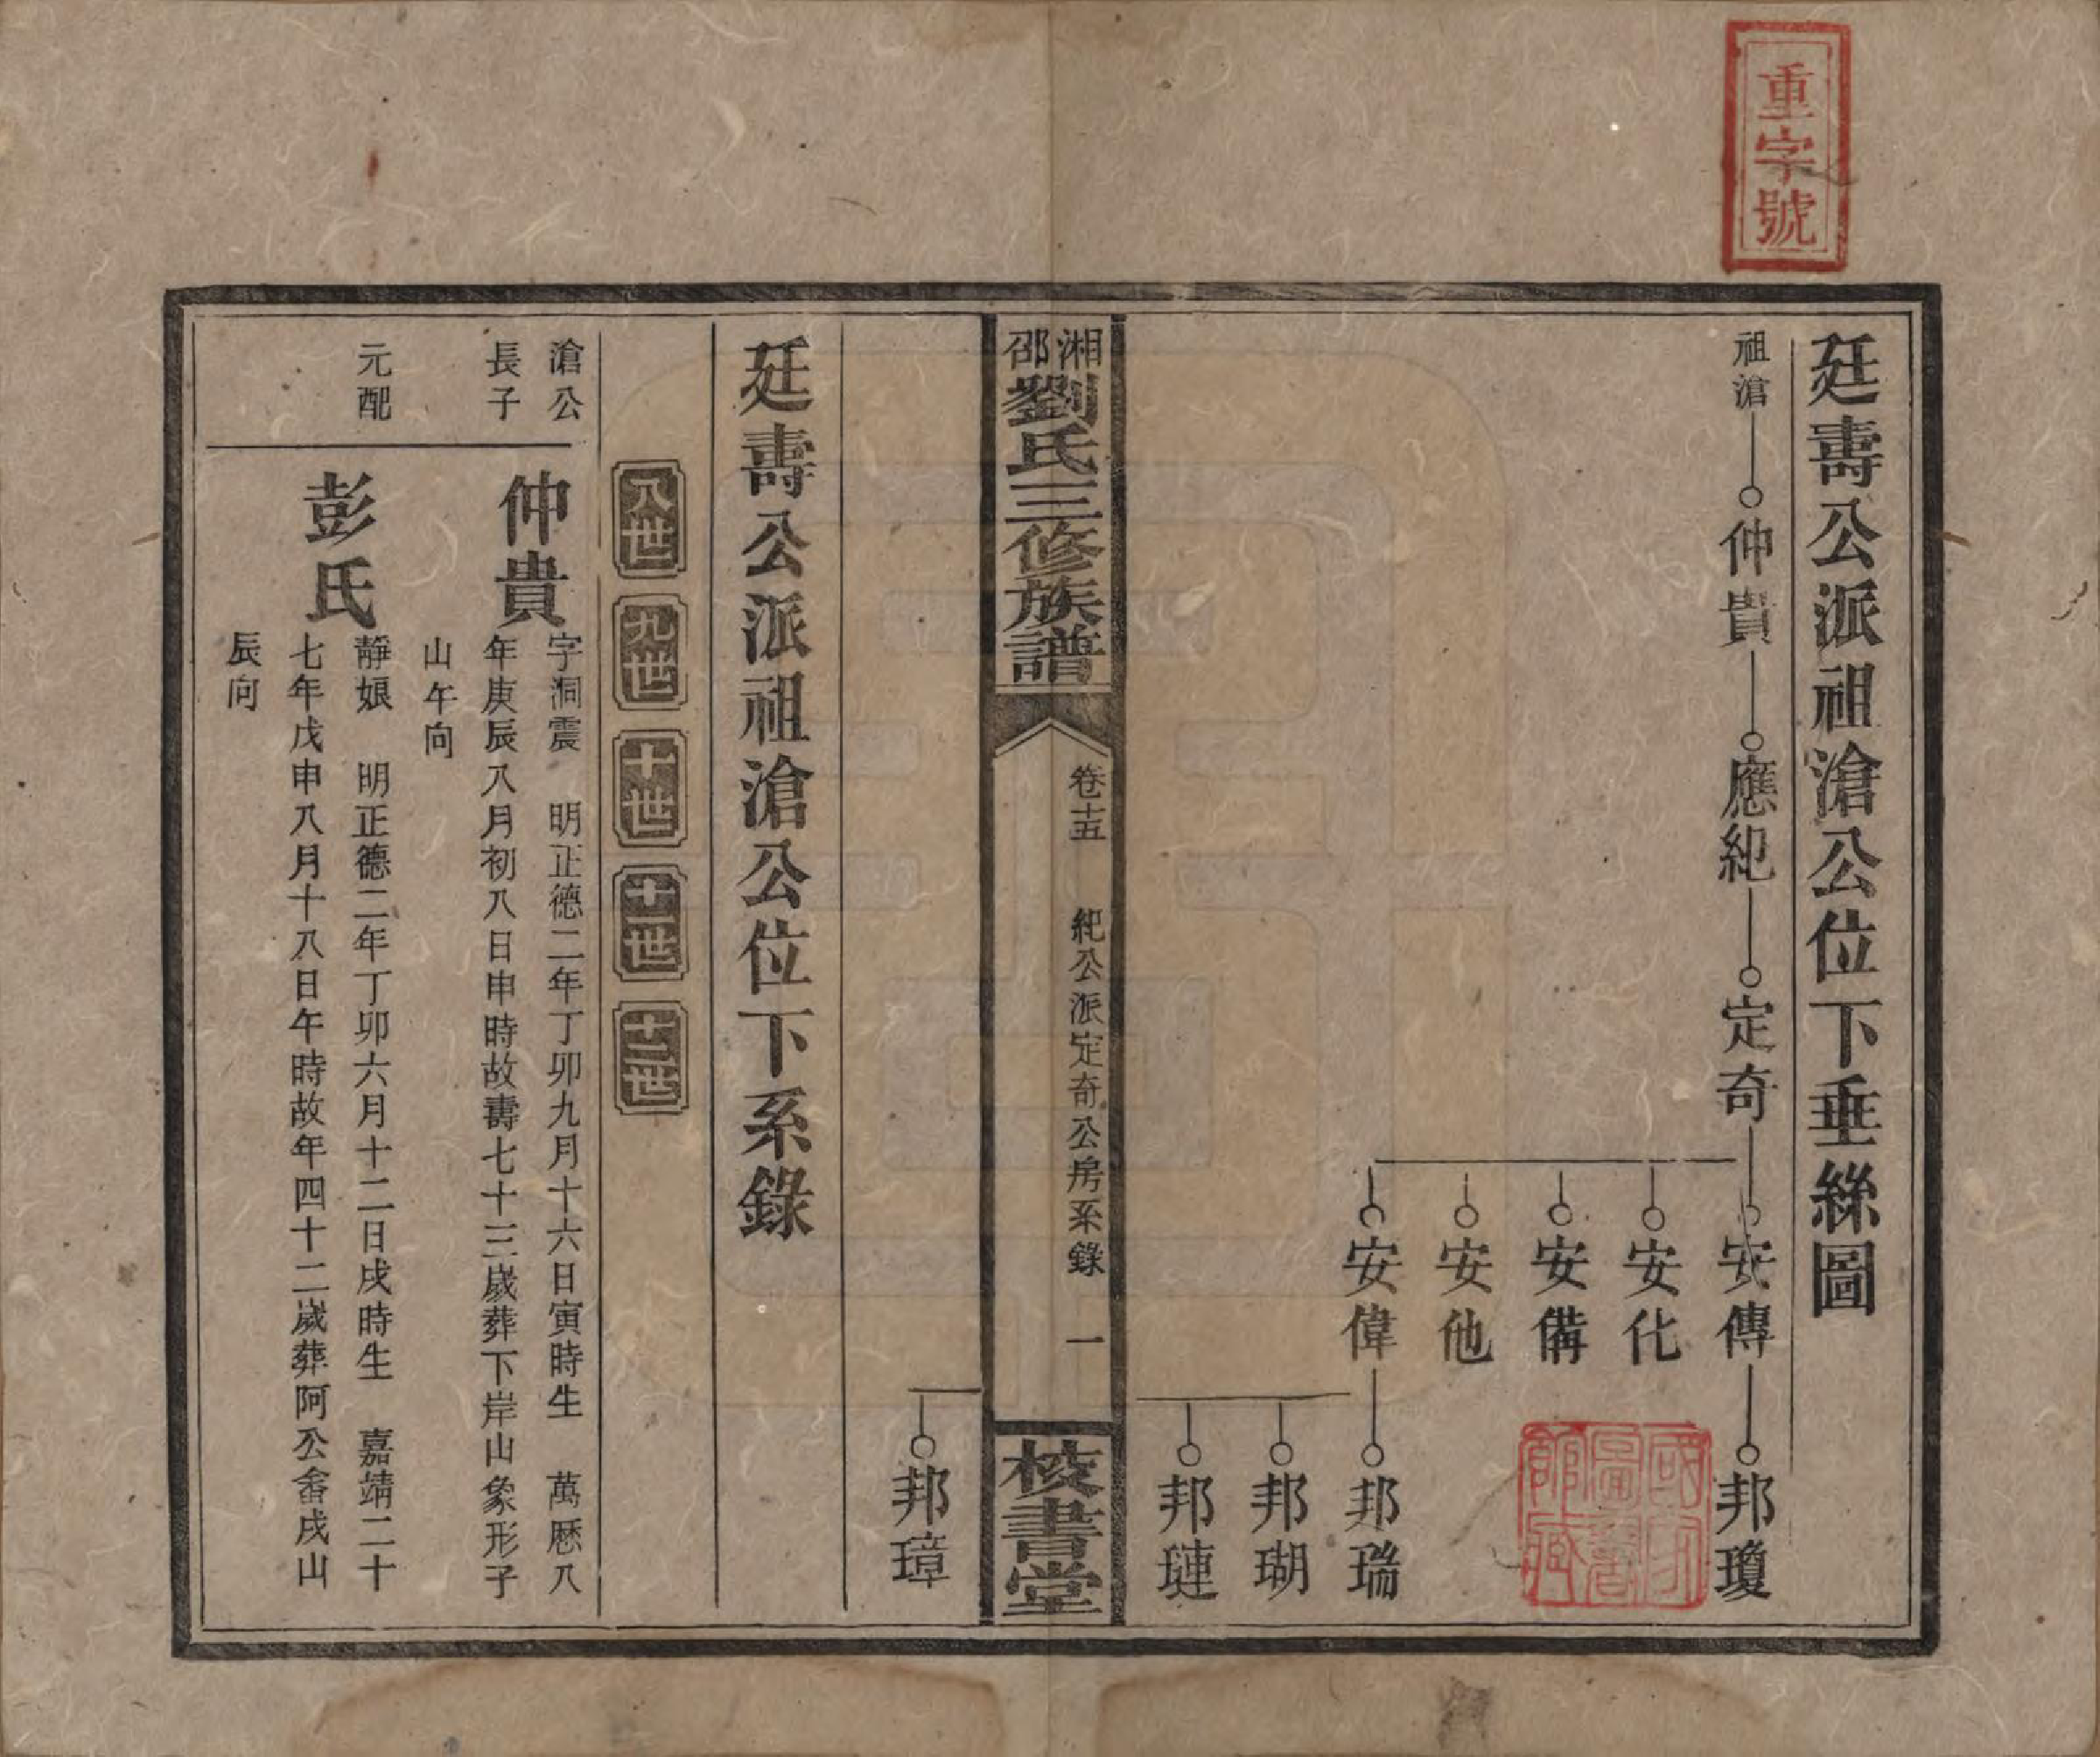 重字號
廷壽公派祖滄公位下垂絲圖
祖滄 仲貴 應紀 定奇 安傳 邦瓊
安化
安備
安他
安偉 邦瑞
邦瑚
邦璉
湘邵劉氏三修族譜
卷十五 紀公派定奇公房系錄 一
校書堂
邦璋
廷壽公派祖滄公位下系錄
八世 九世 十世 十一世 十二世
滄公長子
仲貴
字洞震 明正德二年丁卯九月十六日寅時生 萬歷八
年庚辰八月初八日申時故壽七十三歲葬下岸山象形子
山午向
元配
彭氏
靜娘 明正德二年丁卯六月十二日戌時生 嘉靖二十
七年戊申八月十八日午時故年四十二歲葬阿公畬戌山
辰向